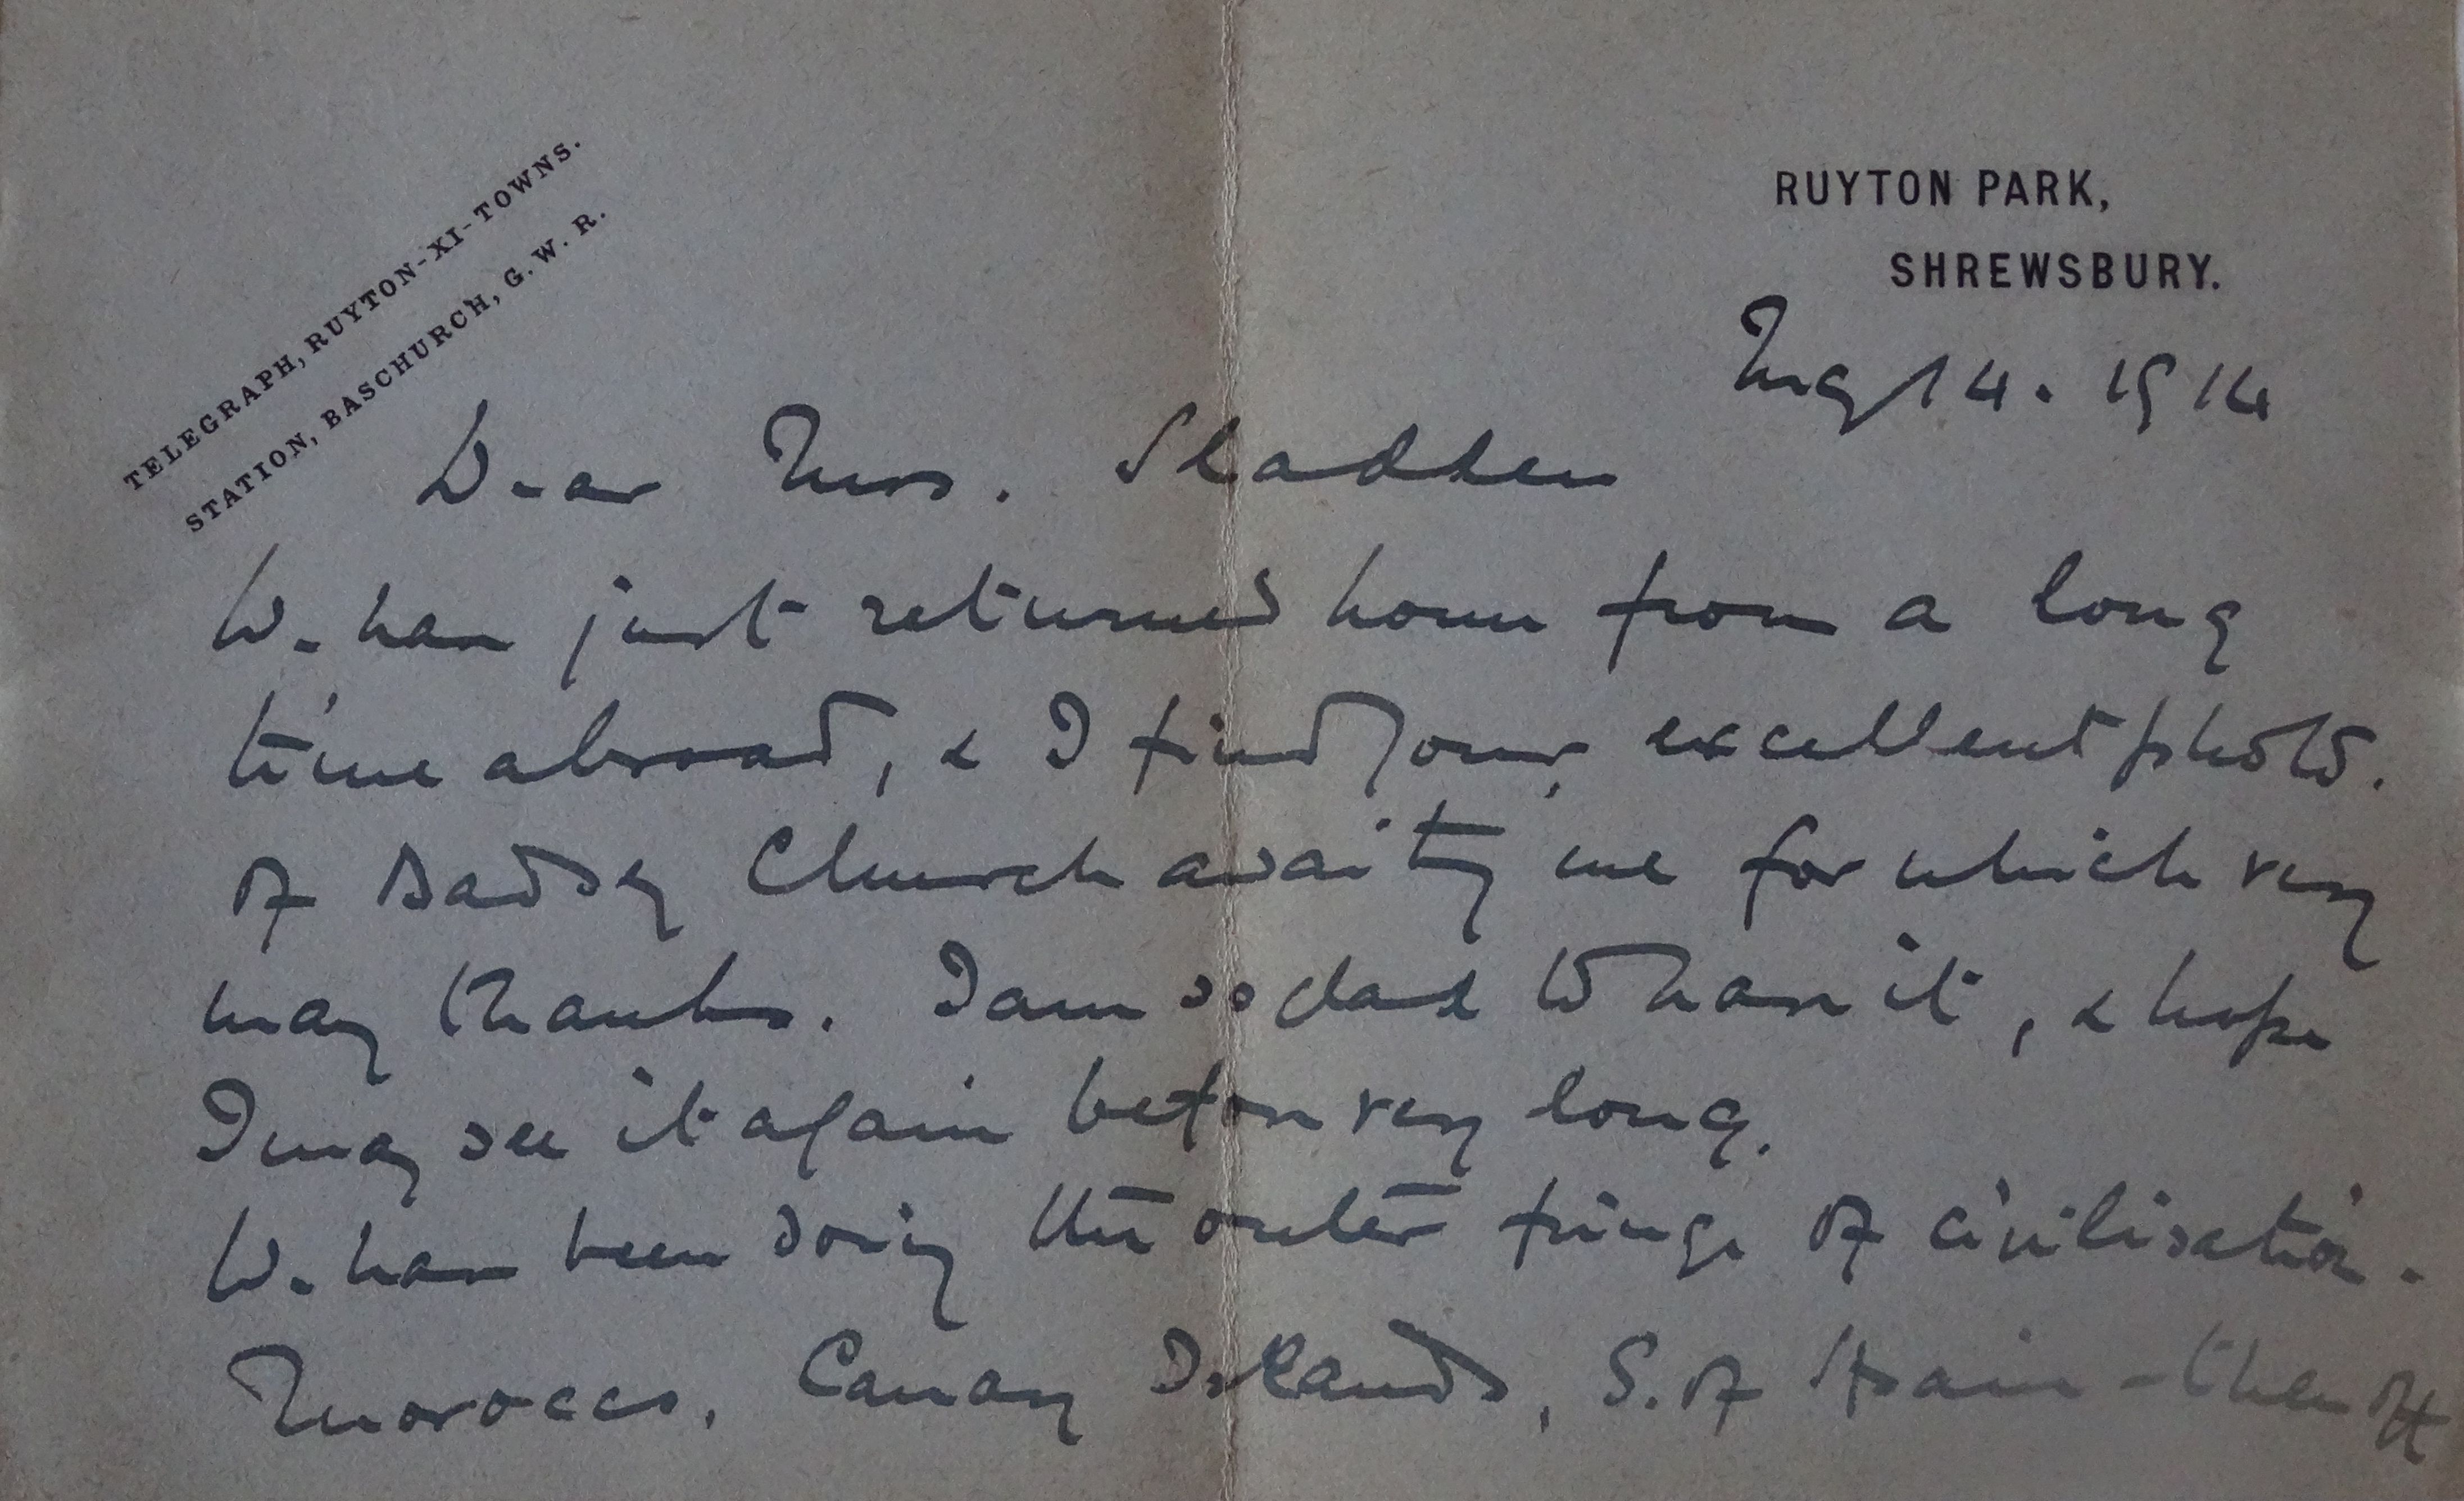 TELEGRAPH, RUYTON-XI-TOWNS.
STATION, BASCHURCH, G.W.R.
RUYTON PARK,
SHREWSBURY.
May 14. 1914
Dear Mrs. Sladden
We have just returned home from a long
time abroad, & I find your excellent photo.
of Badsey Church awaiting me for which very
many thanks. I am so glad to have it, & hope
I may see it again before very long.
We have been doing the outer fringe of civilisation.
Morocco, Canary Islands, S. of Spain - then off